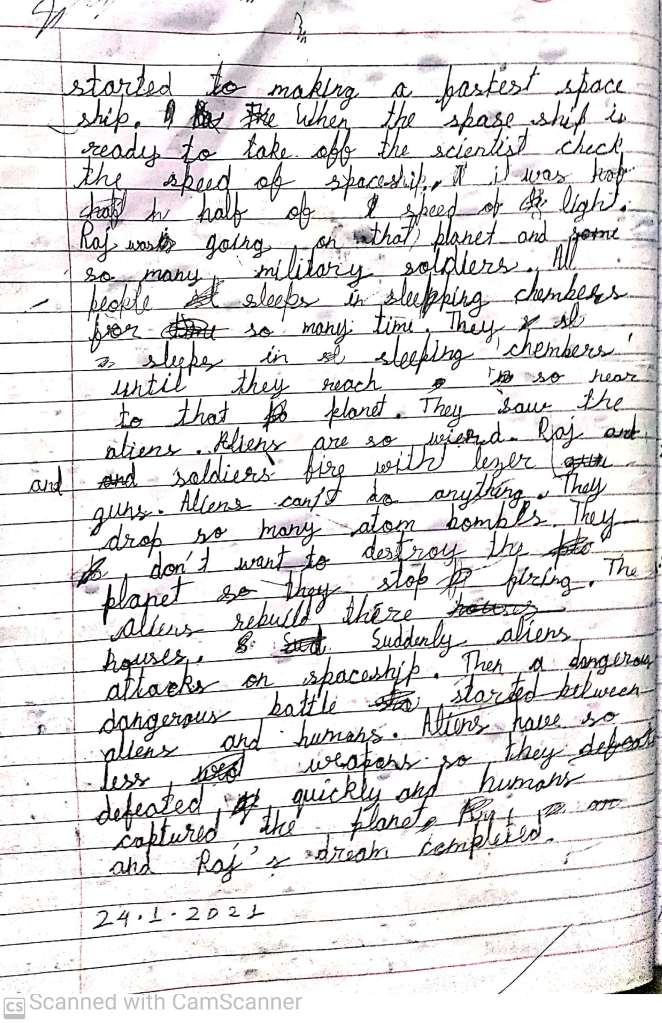 started to making a fastest space
ship. The When the spase ship is
ready to take off the scientist check
the speed of spaceship. it was
half of speed of light.
Raj was going on that planet and some
so many military soldiers. All
people sleeps in sleepping chembers
for so many time. They
sleeps in sleeping chembers
until they reach so near
to that planet. They saw the
aliens. Aliens are so wierd. Raj and
and and soldiers fire with lezer gun
guns. Aliens can't do anything. They
drop so many atom bombs. They
don't want to destroy the
planet so they stop firing. The
aliens rebuild there houses
houses. Suddenly aliens
attacks on spaceship. Then a dangerous
dangerous battle started between
aliens and humans. Aliens have so
less weapons so they defeat
defeated quickly and humans
captured the planet.
and Raj's dream completed.
24.1.2021
CS Scanned with CamScanner